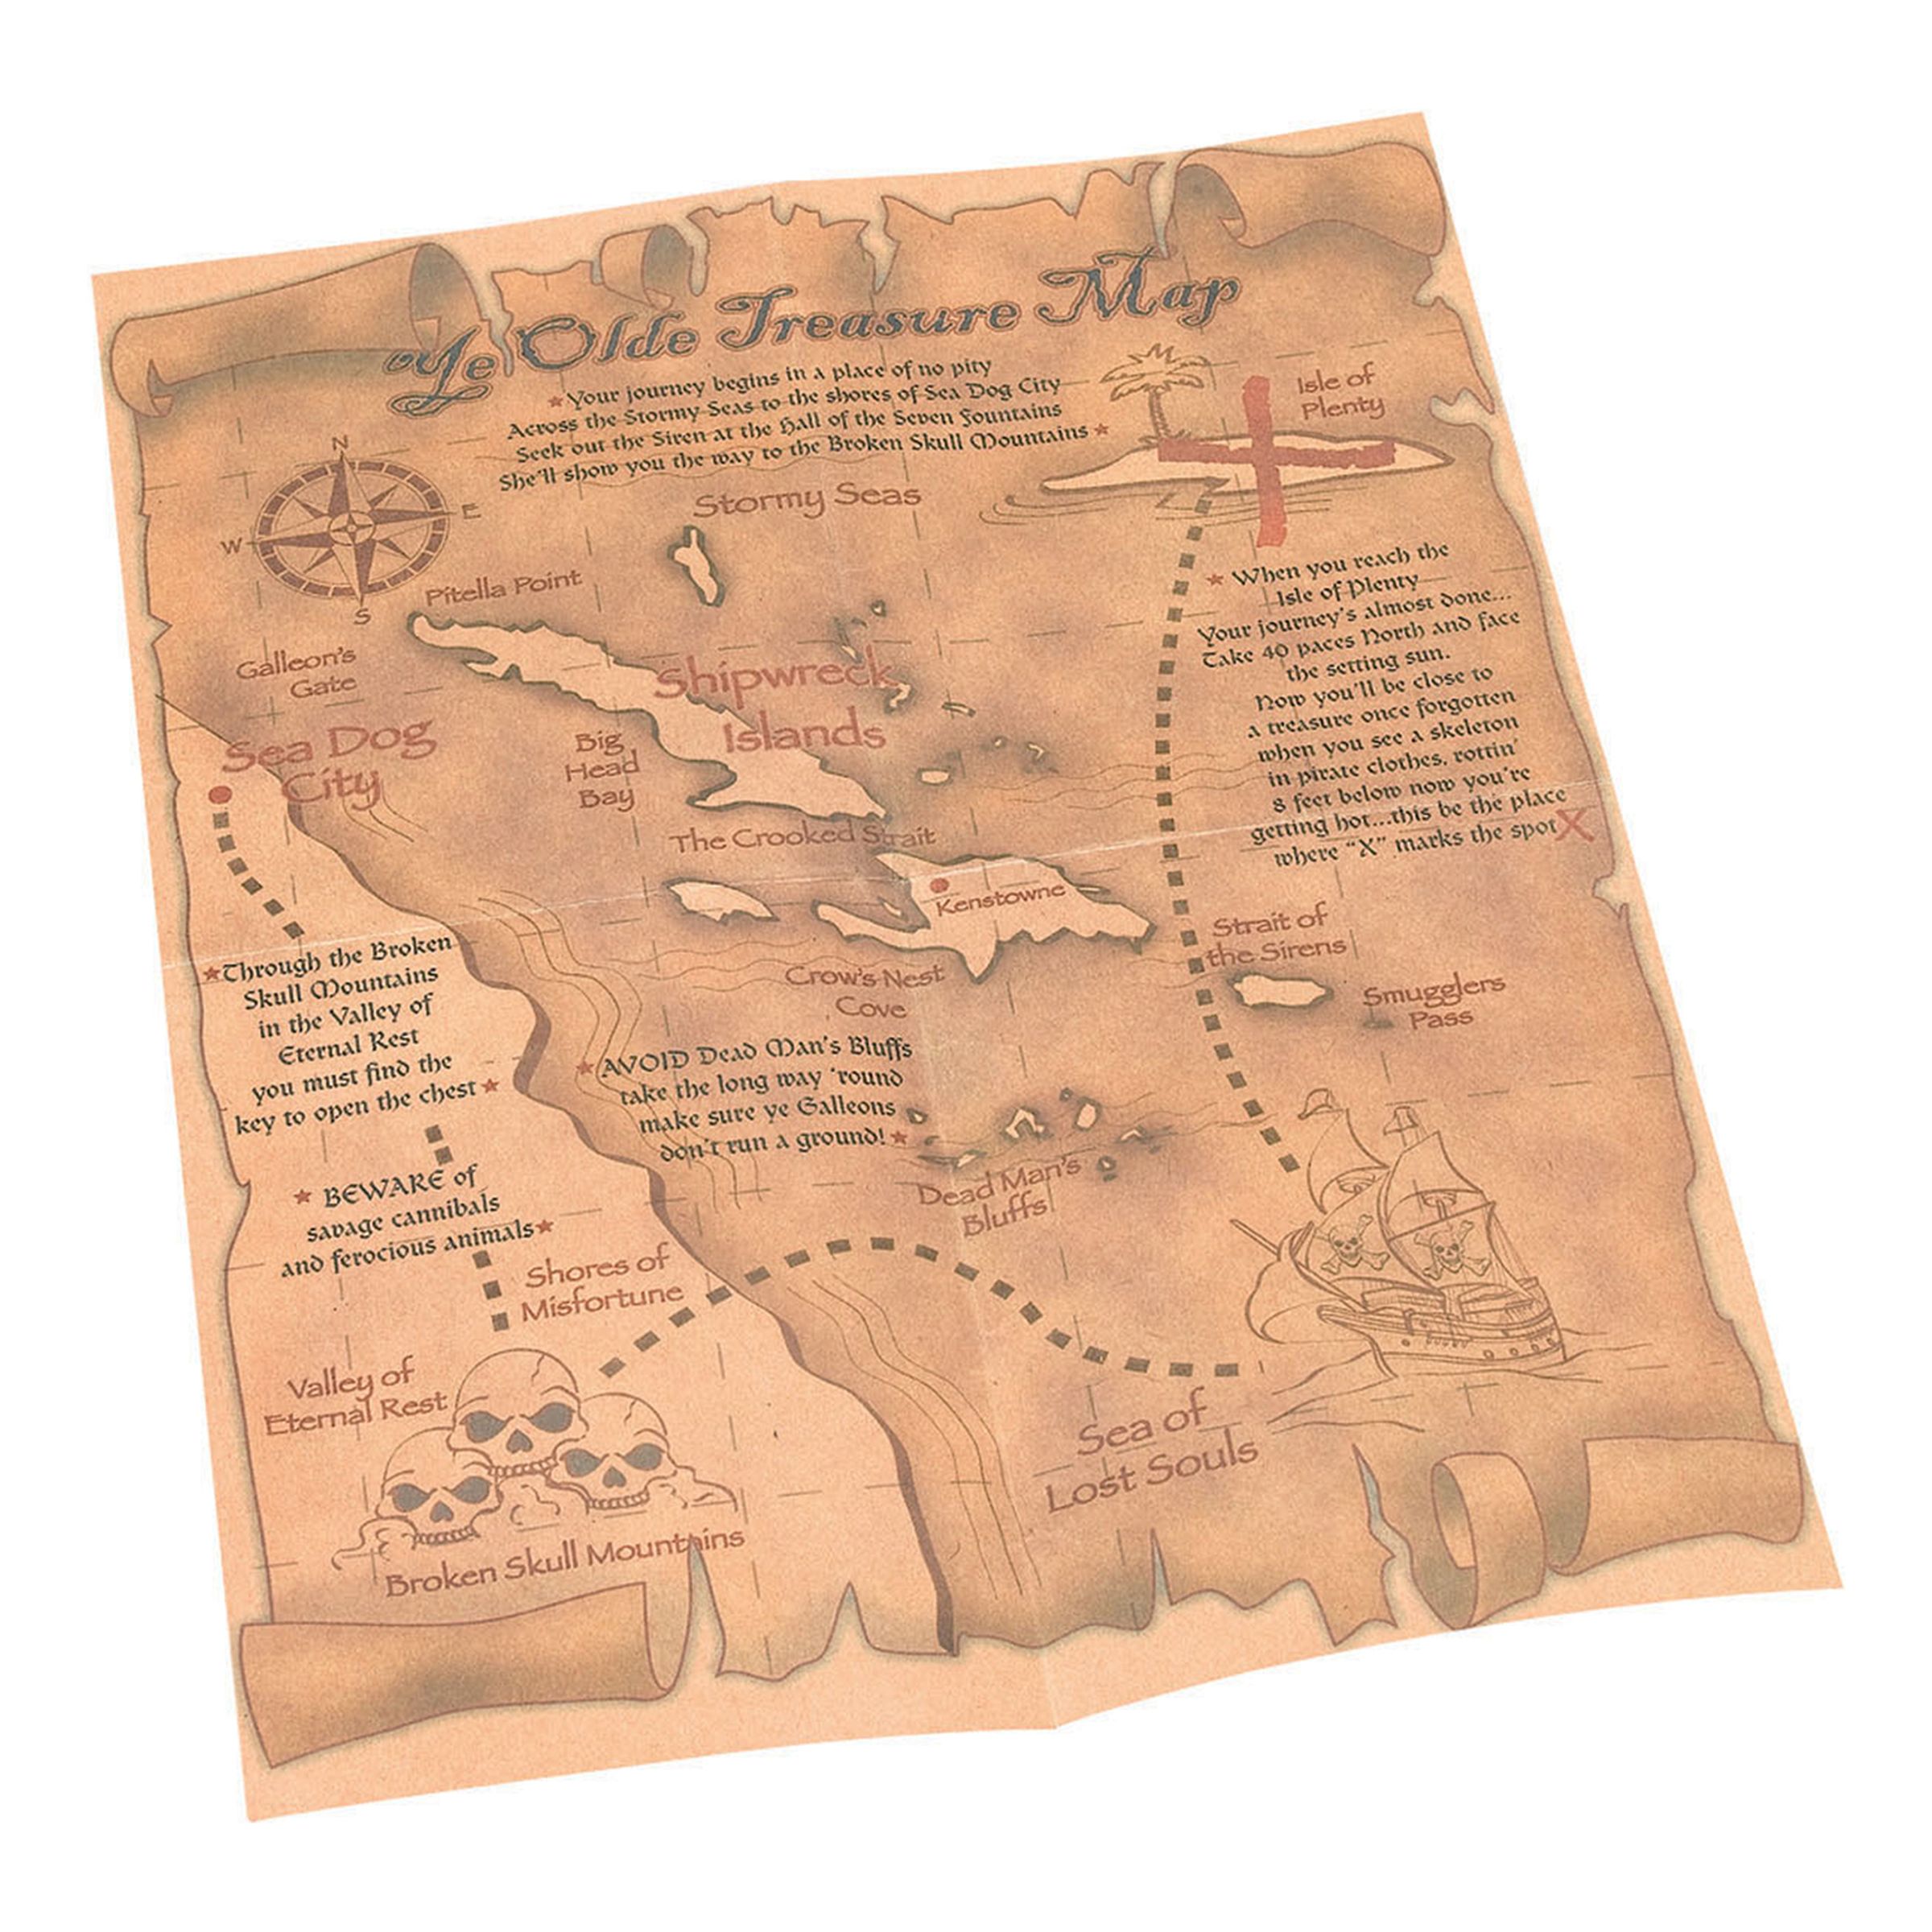 Ye Olde Treasure Map
Your journey begins in a place of no pity
Across the Stormy Seas to the shores of Sea Dog City
Seek out the Siren at the Hall of the Seven Fountains
She'll show you the way to the Broken Skull Mountains
Isle of
Plenty
N
E
W
S
Stormy Seas
Pitella Point
When you reach the
Isle of Plenty
Your journey's almost done...
Take 40 paces North and face
the setting sun.
Now you'll be close to
a treasure once forgotten
when you see a skeleton
in pirate clothes, rottin'
8 feet below now you're
getting hot...this be the place
where "X" marks the spot X
Galleon's
Gate
Shipwreck
Islands
Sea Dog
City
Big
Head
Bay
The Crooked Strait
Kenstowne
Strait of
the Sirens
Crow's Nest
Cove
Smugglers
Pass
Through the Broken
Skull Mountains
in the Valley of
Eternal Rest
you must find the
key to open the chest
AVOID Dead Man's Bluffs
take the long way 'round
make sure ye Galleons
don't run a ground!
Dead Man's
Bluffs
BEWARE of
savage cannibals
and ferocious animals
Shores of
Misfortune
Valley of
Eternal Rest
Sea of
Lost Souls
Broken Skull Mountains